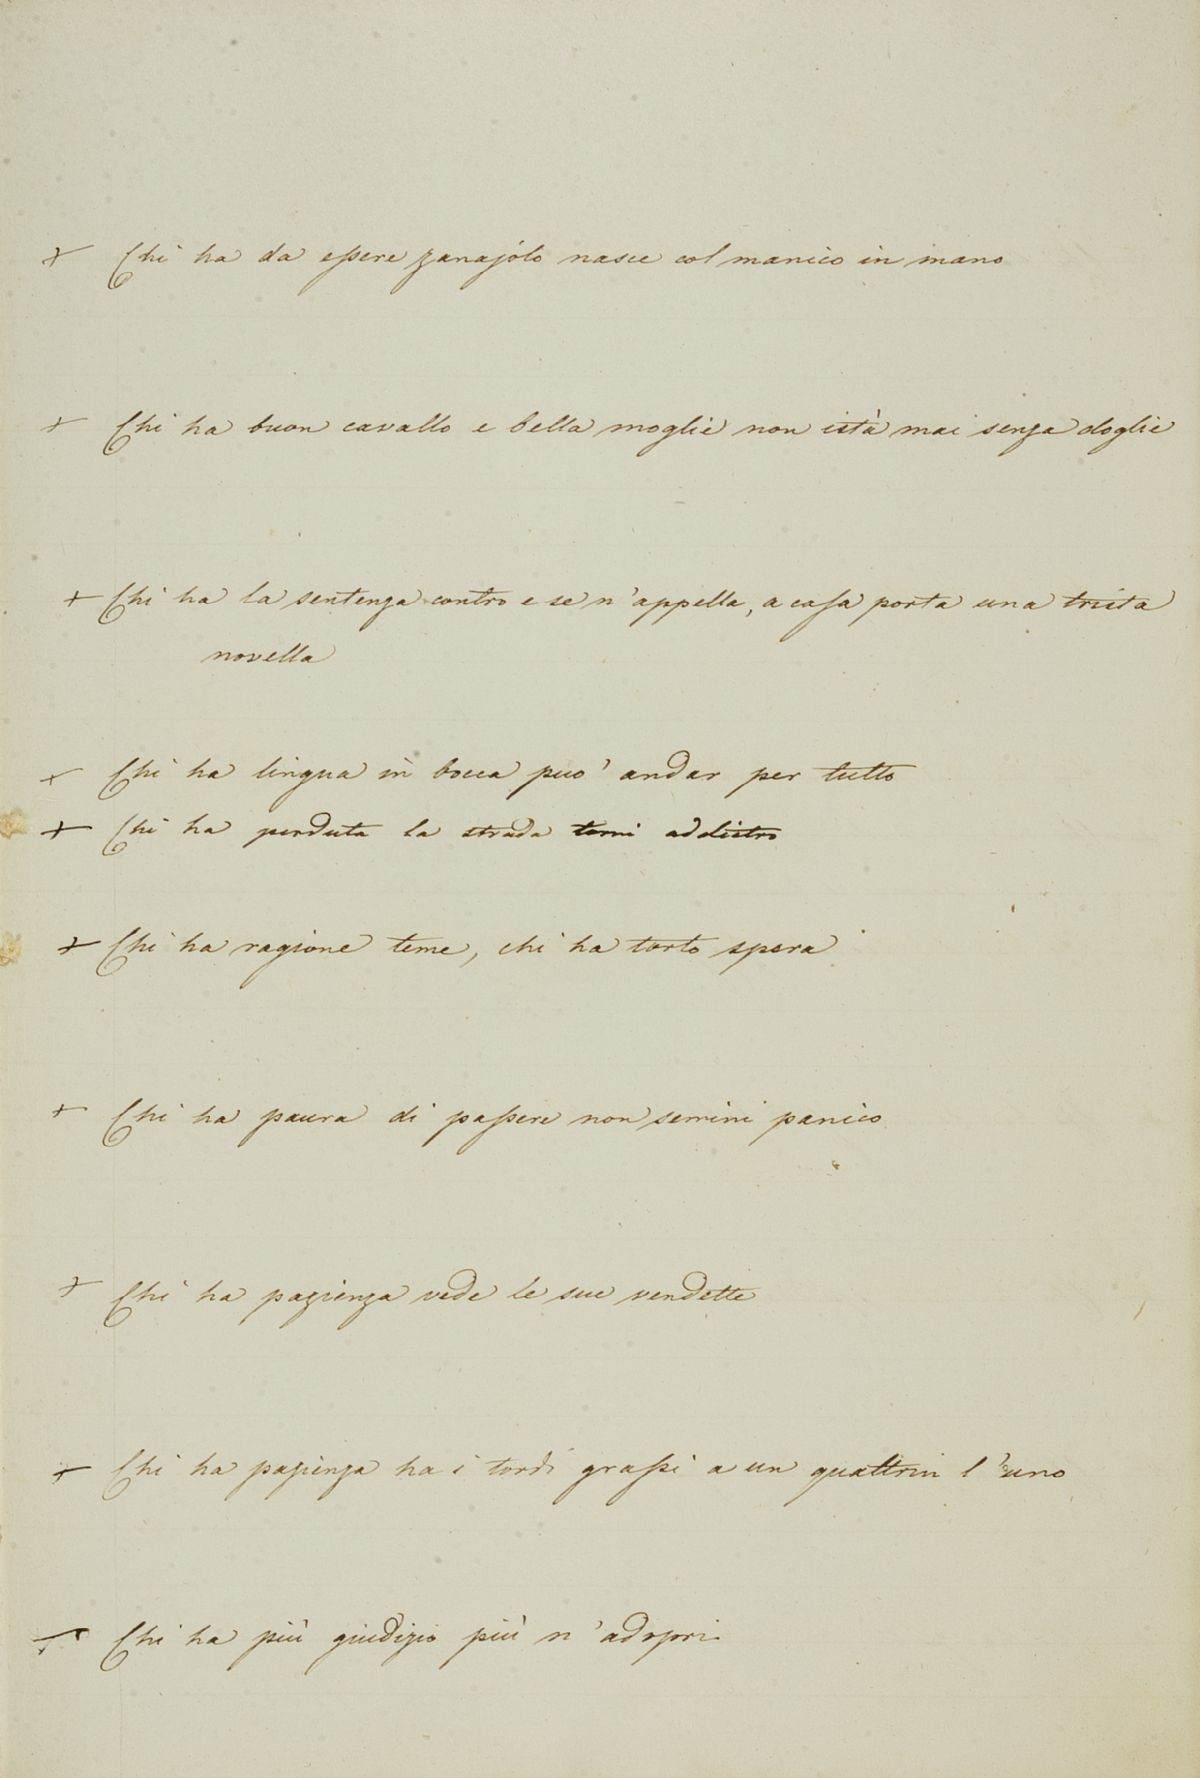 + Chi ha da essere zanajólo nasce col manico in mano
+ Chi ha buon cavallo e bella moglie non istà mai senza doglie
+ Chi ha la sentenza contro e se n'appella, a casa porta una trista
novella
+ Chi ha lingua in bocca puo' andar per tutto
+ Chi ha perduta la strada torni addietro
+ Chi ha ragione teme, chi ha torto spera
+ Chi ha paura di passere non semini panico
+ Chi ha pazienza vede le sue vendette
+ Chi ha pazienza ha i tordi grassi a un quattrin l'uno
+ Chi ha più giudizio più n'adopri